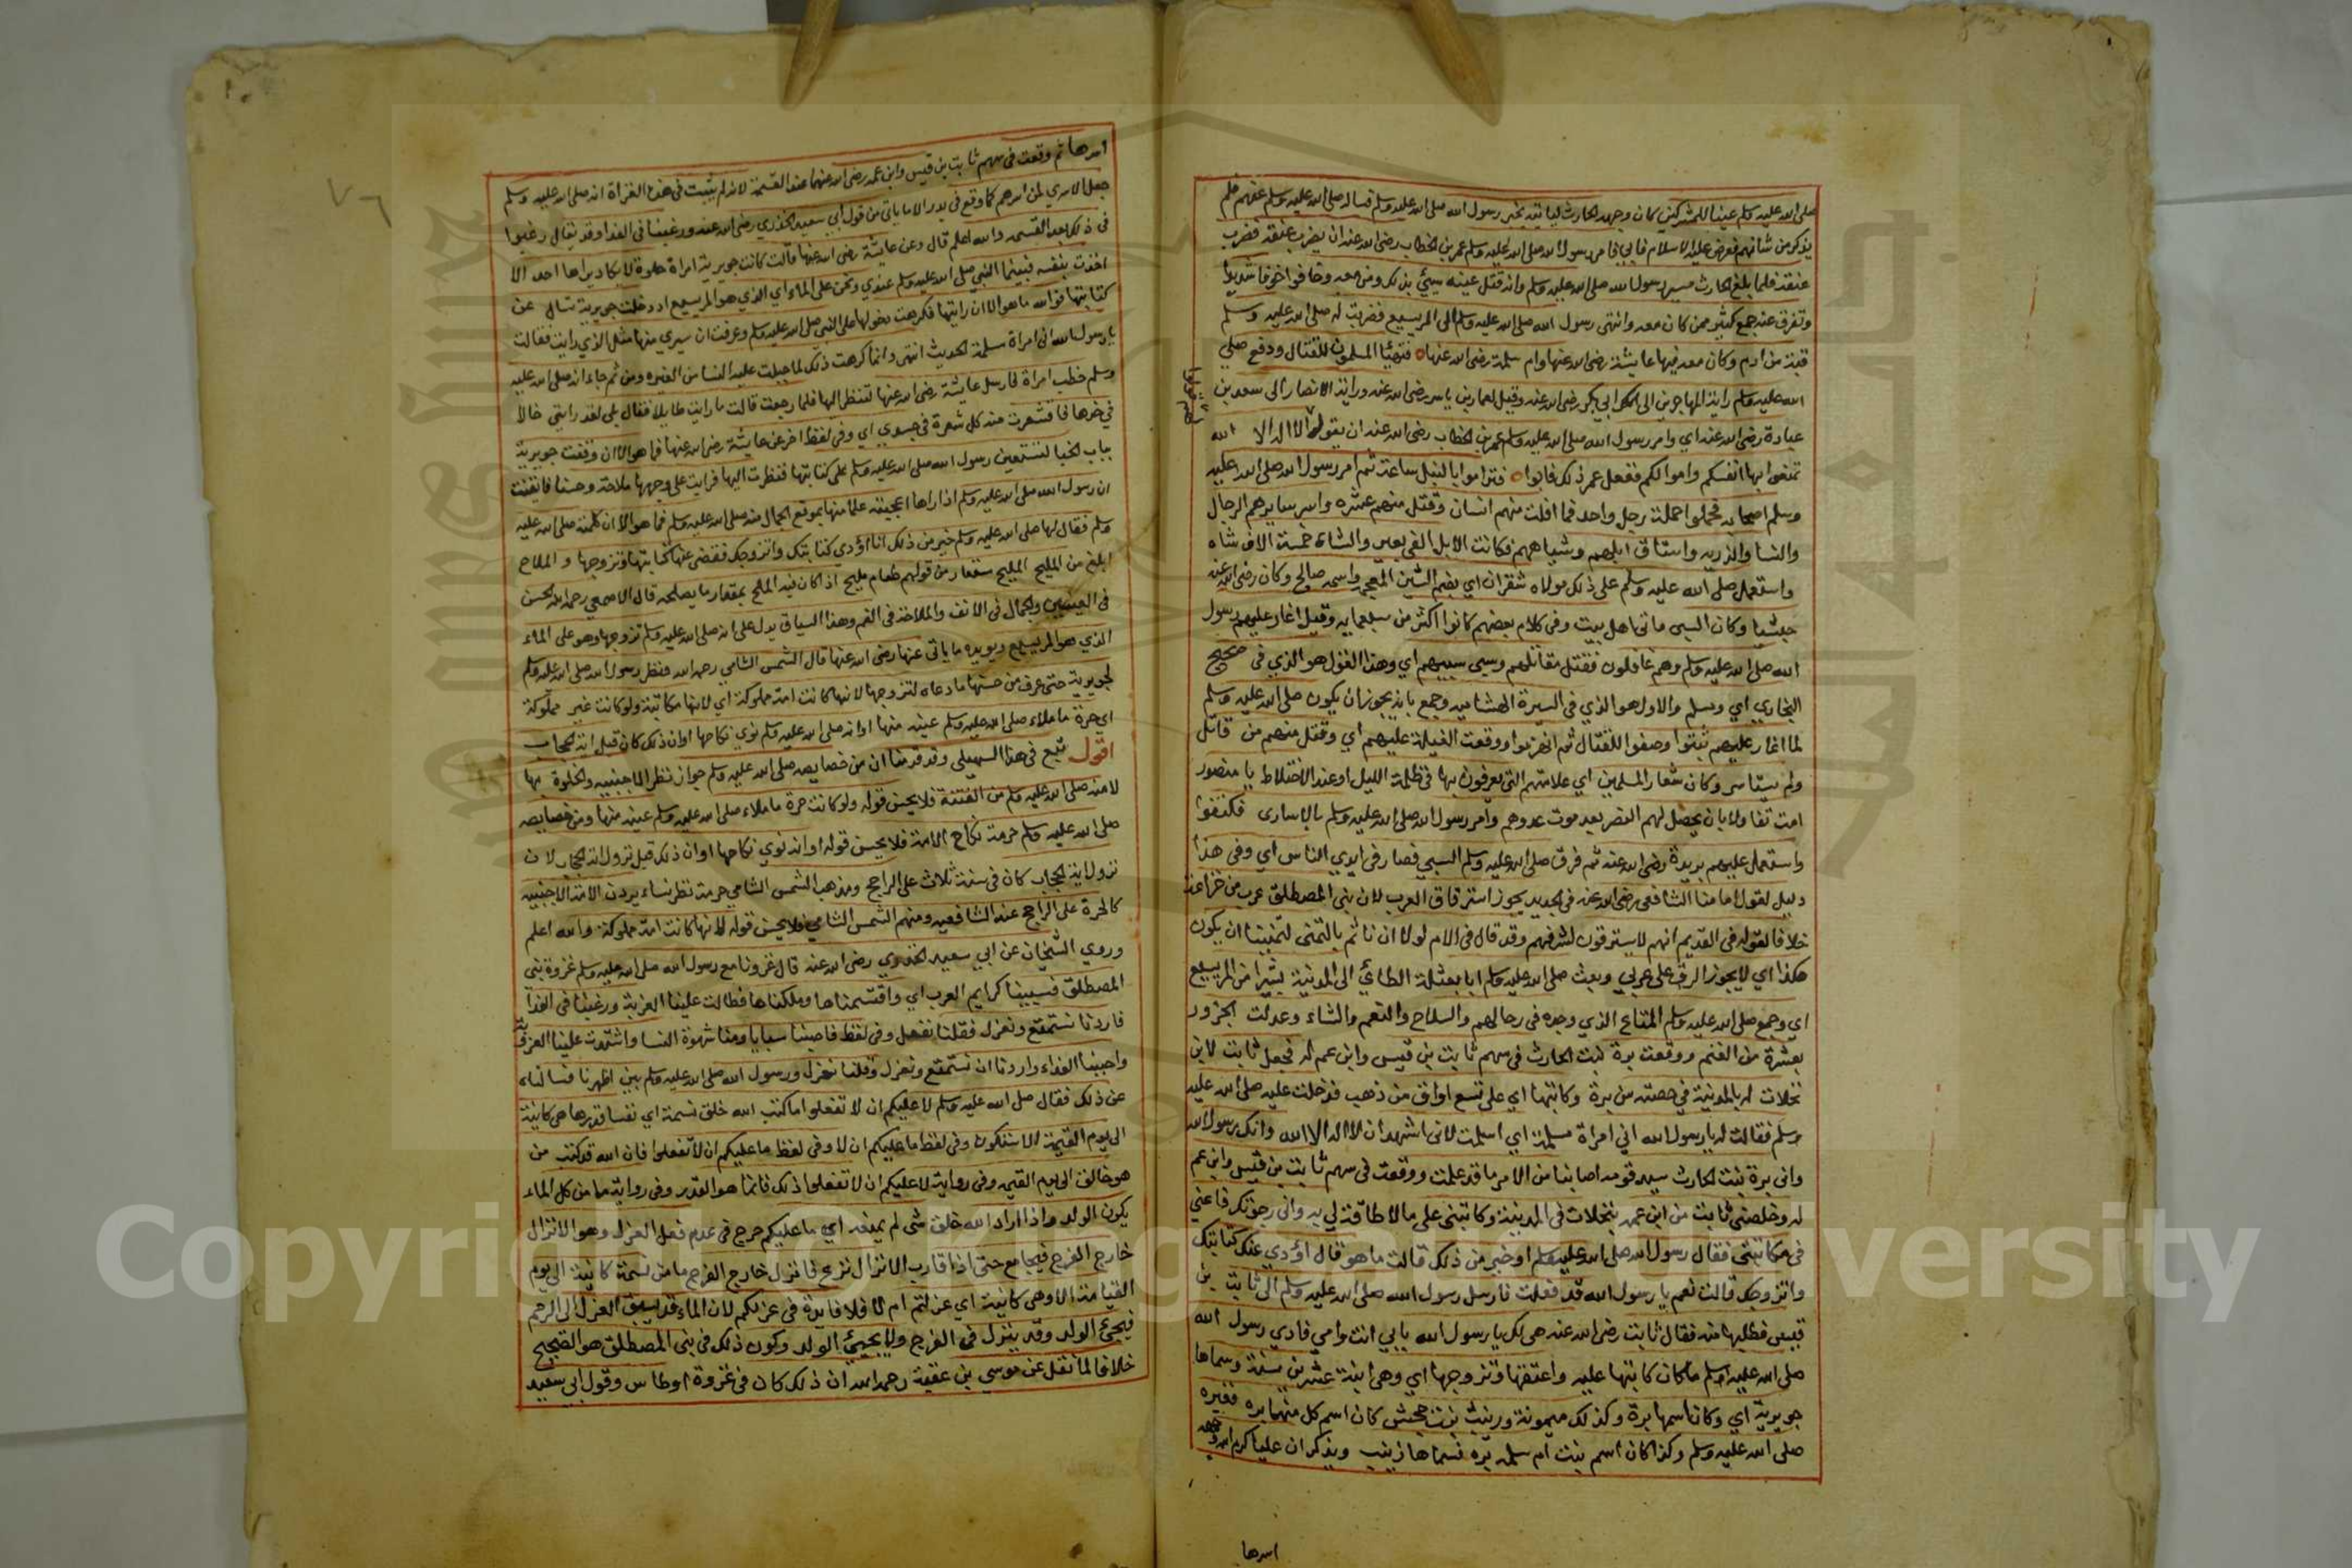 صلى الله عليه وسلم عينا للمشركين كان وجهه الحارث ليأتيه بخبر رسول الله صلى الله عليه وسلم فساله صلى الله عليه وسلم عنهم فلم
يذكر من شانهم فعرض عليه الاسلام فابي فامر رسول الله صلى الله عليه وسلم عمر بن الخطاب رضى الله عنه ان يضرب عنقه فضرب
عنقه فلما بلغ الحارث مسير رسول الله صلى الله عليه وسلم وانه قتل عينه سيئ بذلك ومن معه وخافوا خوفا شديدا
وتفرق عنه جمع كثير ممن كان معه وانتهى رسول الله صلى الله عليه وسلم الى المريسيع فضربت له صلى الله عليه وسلم
قبة من ادم وكان معه فيها عايشة رضى الله عنها وام سلمة رضى الله عنها فتهيأ المسلمون للقتال ودفع صلى
الله عليه وسلم راية المهاجرين الى ابي بكر رضى الله عنه وقيل لعمار بن ياسر رضى الله عنه وراية الانصار الى سعد بن
عبادة رضى الله عنه اي وامر رسول الله صلى الله عليه وسلم عمر بن الخطاب رضى الله عنه ان يقول لا اله الا الله
تمنعوا بها انفسكم واموالكم ففعل عمر ذلك فابوا فتراموا بالنبل ساعة ثم امر رسول الله صلى الله عليه
وسلم اصحابه فحملوا حملة رجل واحد فما افلت منهم انسان وقتل منهم عشره واسر سايرهم الرجال
والنسا والذريه واستاق ابلهم وشياههم فكانت الابل الفي بعير والشاة خمسة الاف شاه
واستعمل صلى الله عليه وسلم على ذلك مولاه شقران اي بضم الشين المعجمه واسمه صالح وكان رضى الله عنه
حبشيا وكان السبي مائتي اهل بيت وفى كلام بعضهم كانوا اكثر من سبعمايه وقيل اغار عليهم رسول
الله صلى الله عليه وسلم وهم غافلون فقتل مقاتلهم وسبى سبيهم اي وهذا القول هو الذي في صحيح
البخاري اي ومسلم والاول هو الذي في السيرة الهشاميه وجمع بانه يجوز ان يكون صلى الله عليه وسلم
لما اغار عليهم ثبتوا وصفوا للقتال ثم انهزموا ووقعت الغلبة عليهم اي وقتل منهم من قاتل
ولم يستاسر وكان شعار المسلمين اي علامتهم التي يعرفون بها في ظلمة الليل او عند الاختلاط يا منصور
امت تفاولا بان يحصل لهم النصر بعد موت عدوهم وامر رسول الله صلى الله عليه وسلم بالاسارى فكتفوا
واستعمل عليهم بريدة رضى الله عنه ثم فرق صلى الله عليه وسلم السبي فصار في ايدي الناس اي وفى هذا
دليل لقول امامنا الشافعي رضى الله عنه في الجديد يجوز استرقاق العرب لان بني المصطلق عرب من خزاعة
خلافا لقوله في القديم انهم لا يسترقون لشرفهم وقد قال في الام لولا ان ناثم بالتمنى لتمنينا ان يكون
هكذا اي لا يجوز الرق على عربي وبعث صلى الله عليه وسلم ابا نعثلة الطائي الى المدينة بشيرا من المريسيع
اي وجمع صلى الله عليه وسلم المتاع الذي وجده في رحالهم والسلاح والنعم والشاء وعدلت الجزور
بعشرة من الغنم ووقعت برة بنت الحارث في سهم ثابت بن قيس وابن عم له فجعل ثابت لابن
نخلات له بالمدينة في حصته من برة وكاتبها اي على تسع اواق من ذهب فدخلت عليه صلى الله عليه
وسلم فقالت له يا رسول الله اني امراة مسلمة اي اسلمت لاني اشهد ان لا اله الا الله وانك رسول الله
واني برة بنت الحارث سيد قومه اصابنا من الامر ما قد علمت ووقعت في سهم ثابت بن قيس وابن عم
له وخلصني ثابت من ابن عمه بنخلات في المدينة وكاتبني على ما لا طاقة لي به واني رجوتك فاعني
في مكاتبتي فقال رسول الله صلى الله عليه وسلم او خير من ذلك قالت ما هو قال اؤدي عنك كتابتك
واتزوجك قالت نعم يا رسول الله قد فعلت فارسل رسول الله صلى الله عليه وسلم الى ثابت بن
قيس فطلبها منه فقال ثابت رضى الله عنه هي لك يا رسول الله بابي انت وامي فادي رسول الله
صلى الله عليه وسلم ما كان كاتبها عليه واعتقها وتزوجها اي وهى ابنة عشرين سنة وسماها
جويرية اي وكان اسمها برة وكذلك ميمونة وزينب بنت جحش كان اسم كل منهما بره فغيره
صلى الله عليه وسلم وكذا كان اسم بنت ام سلمه بره فسماها زينب ويذكر ان عليا كرم الله وجهه
اسرها
٧٦
اسرها ثم وقعت في سهم ثابت بن قيس وابن عمه رضى الله عنهما عند القسمة لانه لم يثبت في هذه الغزاة انه صلى الله عليه وسلم
جعل الاسرى لمن اسرهم كما وقع في بدر الا ما ياتي من قول ابي سعيد الخدري رضى الله عنه ورغبنا في الفدا وقد يقال رغبوا
في ذلك بعد القسمه والله اعلم قال وعن عايشة رضى الله عنها قالت كانت جويرية امراة حلوة لا يكاد يراها احد الا
اخذت بنفسه فبينما النبي صلى الله عليه وسلم عندي ونحن على الماء اي الذي هو المريسيع اذ دخلت جويرية تسال عن
كتابتها فوالله ما هو الا ان رايتها فكرهت دخولها على النبي صلى الله عليه وسلم وعرفت ان سيري منها مثل الذي رايت فقالت
يا رسول الله اني امراة مسلمة الحديث انتهى وانما كرهت ذلك لما جبلت عليه النسا من الغيره ومن ثم جاء انه صلى الله عليه
وسلم خطب امراة فارسل عايشة رضى الله عنها لتنظر اليها فلما رجعت قالت ما رايت طايلا فقال بلى لقد رايتي خالا
في خدها فاقشعرت منه كل شعرة في جسدي اي وفى لفظ اخر عن عايشة رضى الله عنها فما هو الا ان وقفت جويرية
بباب الخبا لتستعين رسول الله صلى الله عليه وسلم على كتابتها فنظرت اليها فرايت على وجهها ملاحة وحسنا فايقنت
ان رسول الله صلى الله عليه وسلم اذا راها اعجبته علما منها بموقع الجمال منه صلى الله عليه وسلم فما هو الا ان كلمته صلى الله عليه
وسلم فقال لها صلى الله عليه وسلم خير من ذلك انا اؤدي كتابتك واتزوجك فقضى عنها كتابتها وتزوجها و الملاح
ابلغ من المليح المليح مستعار من قولهم طعام مليح اذا كان فيه الملح بمقدار ما يصلحه قال الاصمعي رحمه الله الحسن
في العينين والجمال في الانف والملاحة في الفم وهذا السياق يدل على انه صلى الله عليه وسلم تزوجها وهو على الماء
الذي هو المريسيع ويويده ما ياتي عنها رضى الله عنها قال الشمس الشامي رحمه الله ونظر رسول الله صلى الله عليه وسلم
لجويرية حتى عرف من حسنها ما دعاه لتزوجها لانها كانت امة مملوكة اي لانها مكاتبة ولو كانت غير مملوكة
اي حرة ما ملاء صلى الله عليه وسلم عينه منها او انه صلى الله عليه وسلم نوي نكاحها او ان ذلك كان قبل اية الحجاب
اقول تبع في هذا السهيلي وقد قدمنا ان من خصايصه صلى الله عليه وسلم جواز نظر الاجنبيه والخلوة بها
لامنه صلى الله عليه وسلم من الفتنة فلا يحسن قوله ولو كانت حرة ما ملاء صلى الله عليه وسلم عينه منها ومن خصايصه
صلى الله عليه وسلم حرمة نكاح الامة فلا يحسن قوله او انه نوي نكاحها او ان ذلك قبل نزول اية الحجاب لان
نزول اية الحجاب كان في سنة ثلاث على الراجح ومذهب الشمس الشامي حرمة نظر نساء يردن الامة الاجنبيه
كالحرة على الراجح عند الشافعيه ومنهم الشمس الشامي فلا يحسن قوله لانها كانت امة مملوكة والله اعلم
وروي الشيخان عن ابي سعيد الخدري رضى الله عنه قال غزونا مع رسول الله صلى الله عليه وسلم غزوة بني
المصطلق فسبينا كرايم العرب اي واقتسمناها وملكناها فطالت علينا العزبة ورغبنا في الفدا
فاردنا نستمتع ونعزل فقلنا نفعل وفى لفظ فاصبنا سبايا وبنا شهوة النسا واشتدت علينا العزبة
واحببنا الفداء واردنا ان نستمتع ونعزل وقلنا نعزل ورسول الله صلى الله عليه وسلم بين اظهرنا فسالناه
عن ذلك فقال صلى الله عليه وسلم لا عليكم ان لا تفعلوا ما كتب الله خلق نسمة اي نفسا قدرها هى كاينة
الى يوم القيمة الا ستكون وفى لفظ ما عليكم ان لا وفى لفظ ما عليكم ان لا تفعلوا فان الله قد كتب من
هو خالق الى يوم القيمه وفى رواية لا عليكم ان لا تفعلوا ذلك فانما هو القدر وفى رواية ما من كل الماء
يكون الولد واذا اراد الله خلق شى لم يمنعه اي ما عليكم حرج في عدم فعل العزل وهو الانزال
خارج الفرج فيجامع حتى اذا قارب الانزال نزع فانزل خارج الفرج ما من نسمة كاينة الى يوم
القيامة الا وهى كاينة اي عزلتم ام لا فلا فايدة في عزلكم لان الماء قد يسبق العزل الى الرحم
فيجئ الولد وقد ينزل في الفرج ولا يجيئ الولد وكون ذلك في بني المصطلق هو الصحيح
خلافا لما نقل عن موسى بن عقبة رحمه الله ان ذلك كان في غزوة اوطاس وقول ابي سعيد
Copyright © King Saud University